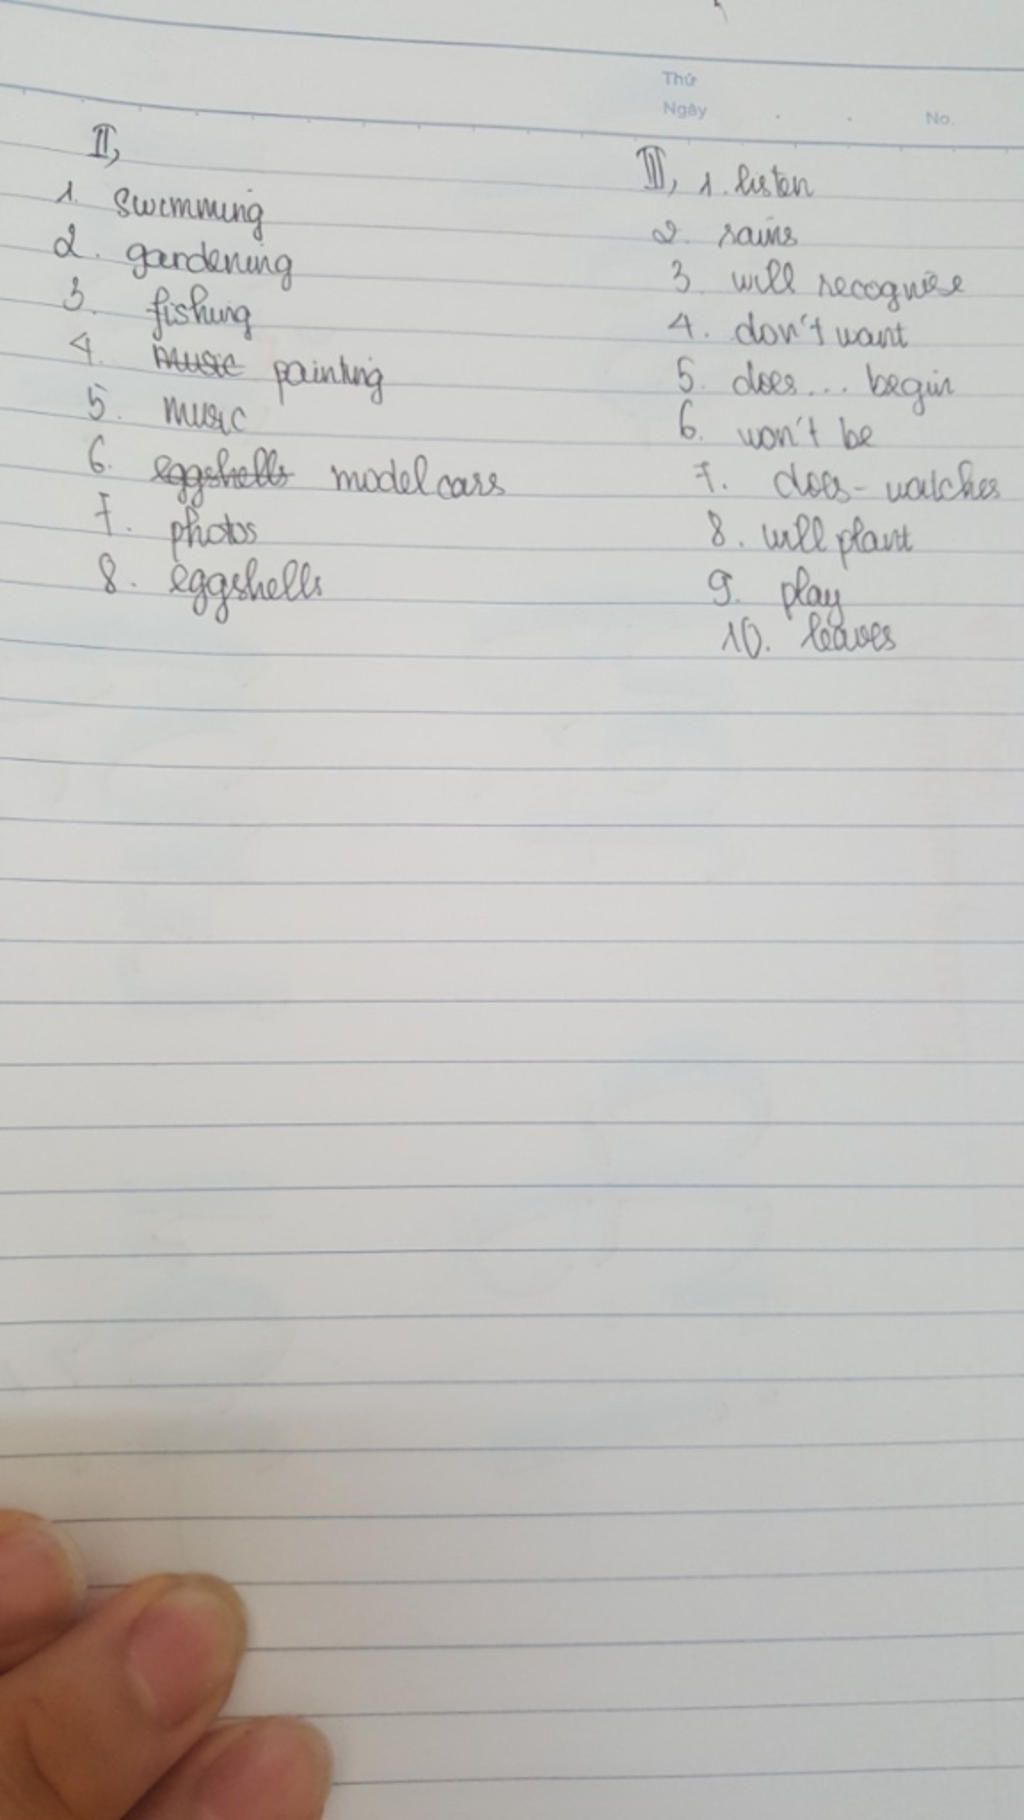 Thứ
Ngày . . No.
II,
1. swimming
2. gardening
3. fishing
4. music painting
5. music
6. eggshells model cars
7. photos
8. eggshells
III, 1. listen
2. rains
3. will recognise
4. don't want
5. does... begin
6. won't be
7. does - watches
8. will plant
9. play
10. leaves